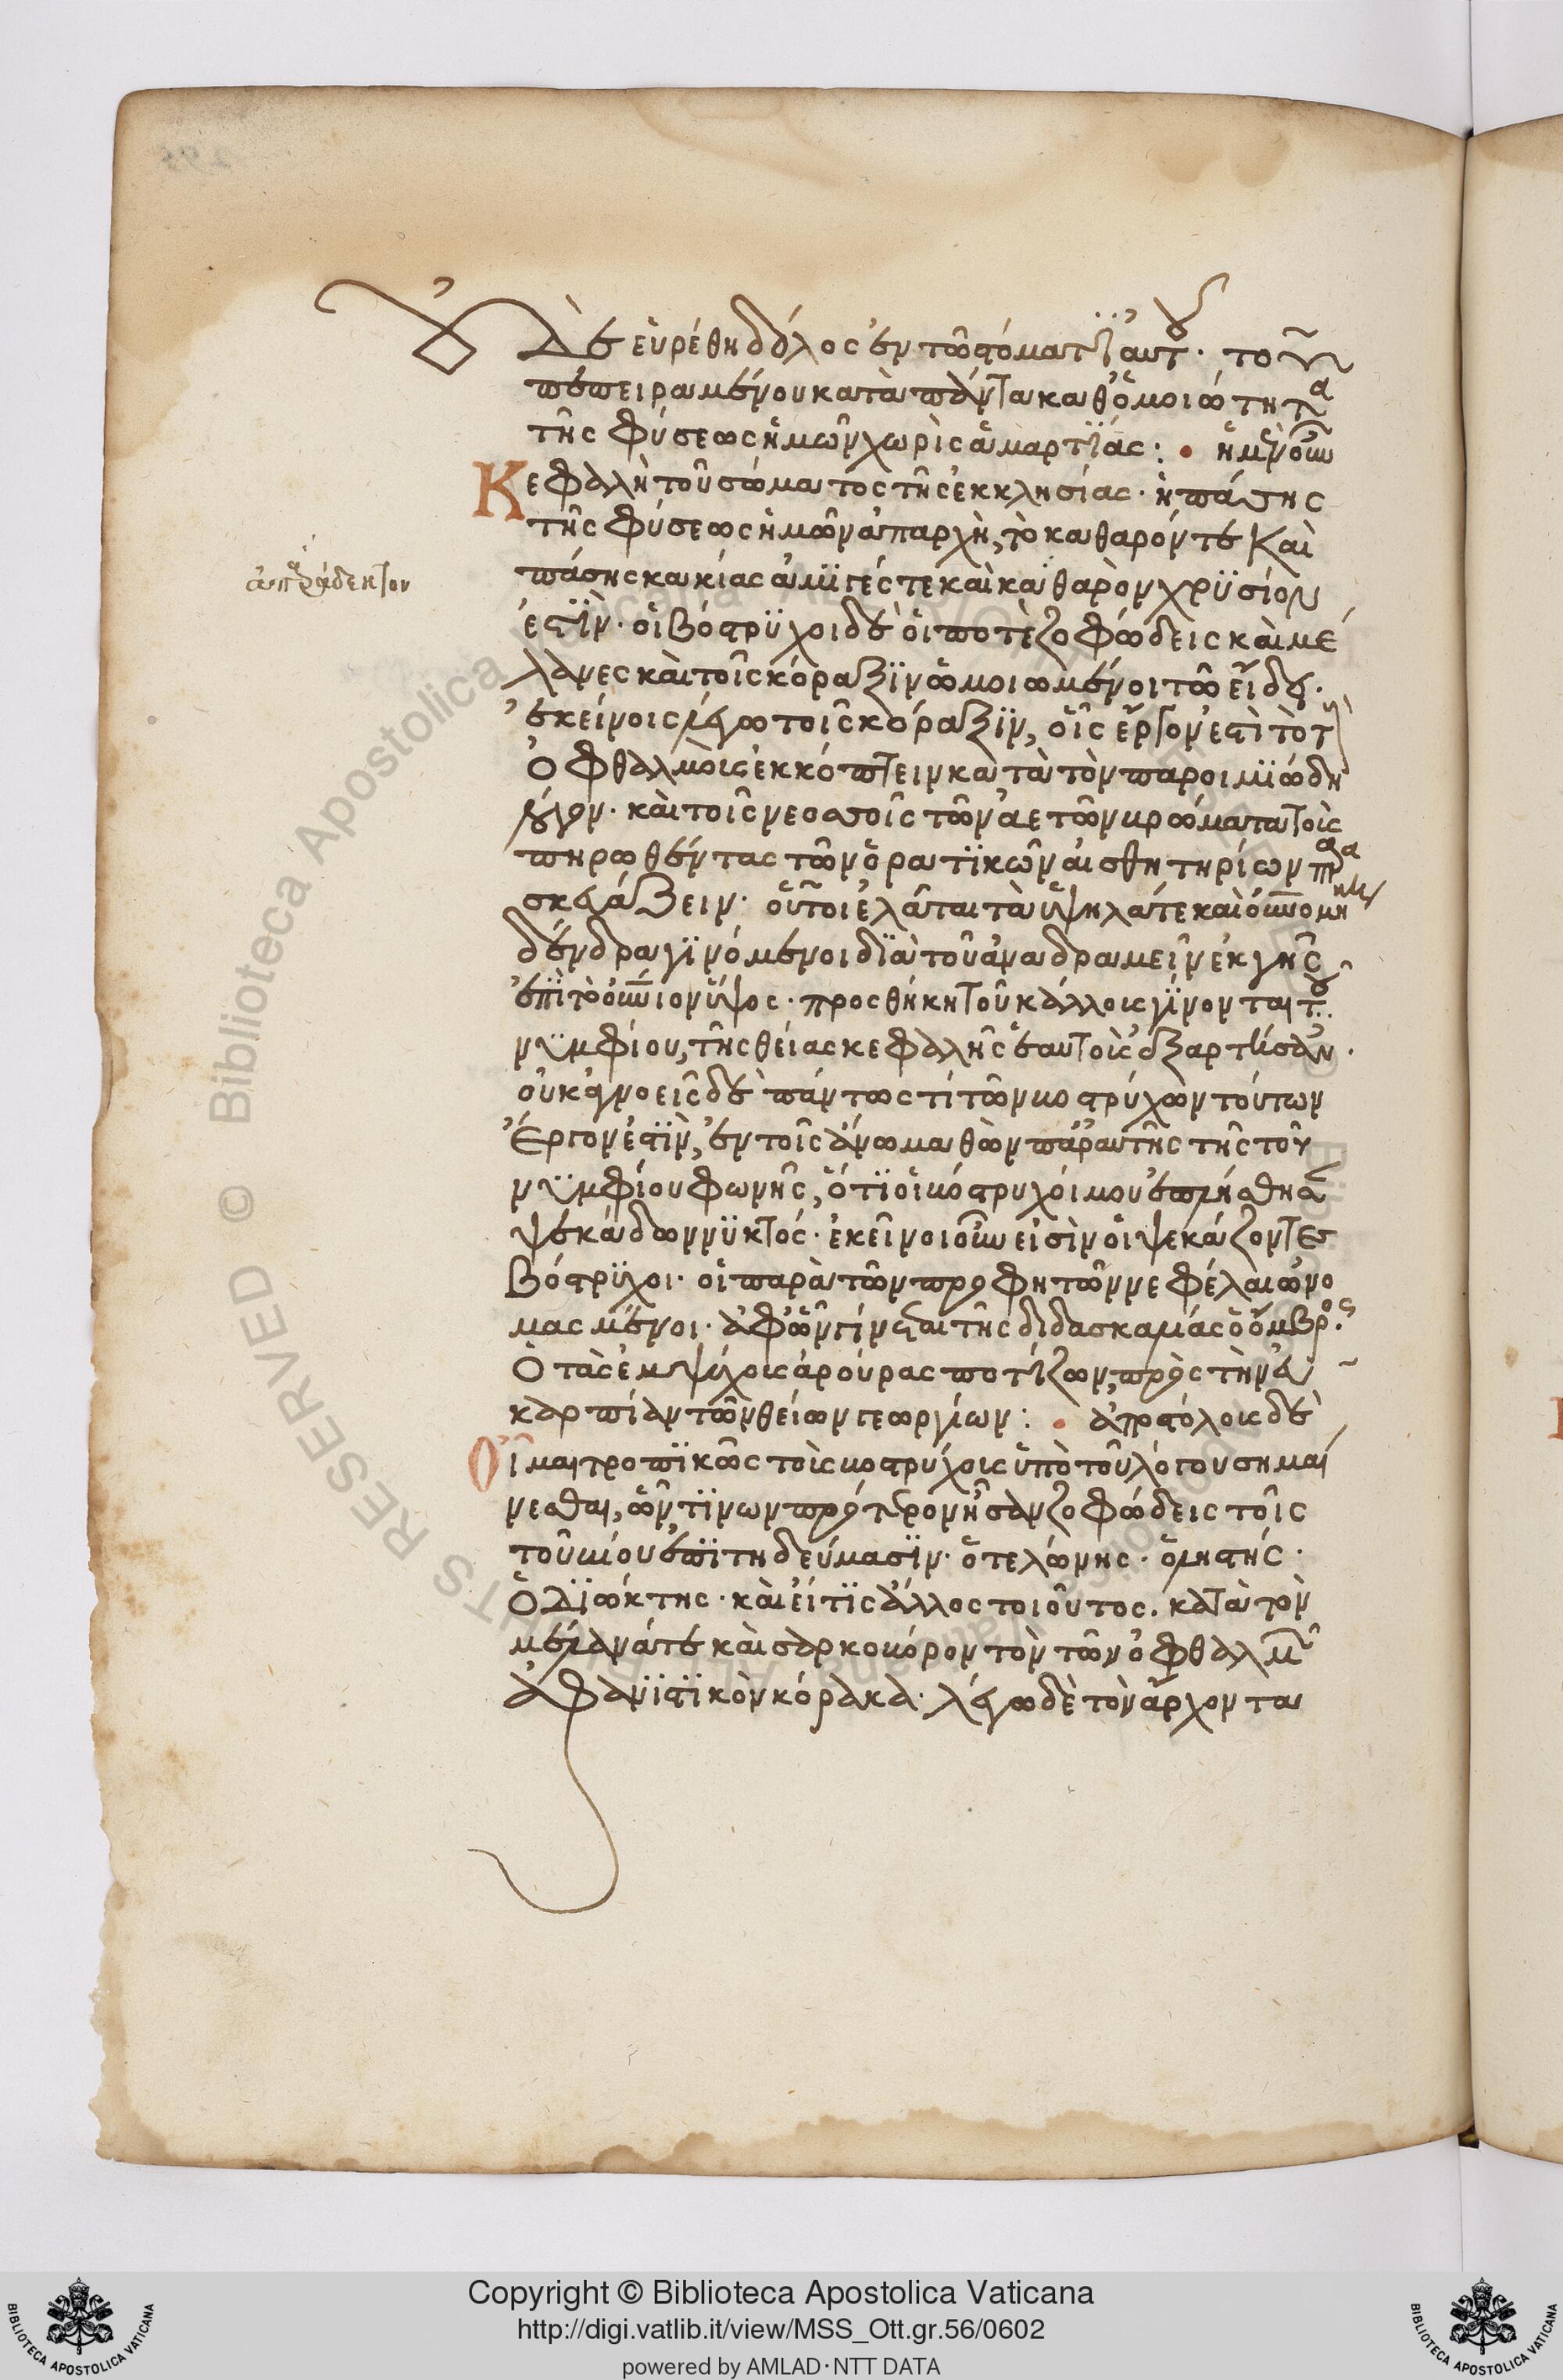 δὲ εὑρέθη δόλος ἐν τῶ στόματϊ αὐτοῦ· τοῦ
πεπειραμένου κατὰ πάντα καθ' ὁμοιώτητα
τῆς φύσεως ἡμῶν χωρὶς ἁμαρτϊας: · ἡ μὲν οὖν
Κεφαλὴ τοῦ σώματος τῆς ἐκκλησίας· ἡ πάσης
τῆς φύσεως ἡμῶν ἀπαρχὴ, τὸ καθαρόν τε καὶ
ἀπαράδεκτον
πάσης κακίας ἀμϊγές τε καὶ καθαρὸν χρϋσίον
ἐστϊν· οἱ βόστρϋχοι δὲ οἱ ποτὲ ζοφώδεις καὶ μέ
λανες καὶ τοῖς κόραξϊν ὁμοιωμένοι τῶ εἴδει·
ἐκείνοις λέγω τοῖς κόραξϊν, οἷς ἔργον ἐστὶ τὸ τοὺς
ὀφθαλμοὺς ἐκκόπτειν κατὰ τὸν παροιμϊώδη
λόγον· καὶ τοῖς νεοσσοῖς τῶν ἀετῶν βρώματα τοὺς
πηρωθέντας τῶν ὁρατϊκῶν αἰσθητηρίων παρα
σκευάζειν· οὗτοι ἐλάται τὰ ὑψηλά τε καὶ οὐρανομήκη
δένδρα γϊνόμενοι δϊὰ τοῦ ἀναδραμεῖν ἐκ γῆς
ἐπϊ τὸ οὐράνιον ὕψος· προσθήκη τοῦ κάλλους γίνονται τοῦ
νϋμφίου, τῆς θείας κεφαλῆς ἑαυτοὺς ἐξαρτήσαν·
οὐκ ἀγνοεῖς δὲ πάντως τί τῶν βοστρύχων τούτων
ἔργον ἐστϊν, ἐν τοῖς ἄνω μαθὼν παρ' αὐτῆς τῆς τοῦ
νϋμφίου φωνῆς, ὅτϊ οἱ βόστρυχοί μου ἐπλήσθησαν
ψεκάδων νϋκτός· ἐκεῖνοι οὖν εἰσὶν οἱ ψεκάζοντες
βόστρϋχοι· οἱ παρὰ τῶν προφητῶν νεφέλαι ὠνο
μασμένοι· ἀφ' ὧν γίνεται τῆς διδασκαλίας ὁ ὄμβρος·
ὁ τὰς ἐμψύχους ἀρούρας ποτίζων, πρὸς τὴν εὐ
καρπίαν τῶν θείων γεωργίων: · ἀποστόλους δὲ
Οἶμαι τροπϊκῶς τοὺς βοστρύχους ὑπὸ τοῦ λόγου σημαί
νεσθαι, ὧν τϊνων πρότερον ἦσαν ζοφώδεις τοῖς
τοῦ βίου ἐπϊτηδεύμασϊν· ὁ τελώνης· ὁ ληστής·
ὁ δϊώκτης· καὶ εἴ τϊς ἄλλος τοιοῦτος. κατὰ τὸν
μέλανά τε καὶ σαρκοβόρον τὸν τῶν ὀφθαλμῶν
ἀφανϊστϊκὸν κόρακα· λέγω δὲ τὸν ἄρχοντα
© Biblioteca Apostolica Vaticana
RIGHTS RESERVED
Copyright © Biblioteca Apostolica Vaticana
http://digi.vatlib.it/view/MSS_Ott.gr.56/0602
powered by AMLAD·NTT DATA
BIBLIOTECA APOSTOLICA VATICANA
BIBLIOTECA APOSTOLICA VATICANA